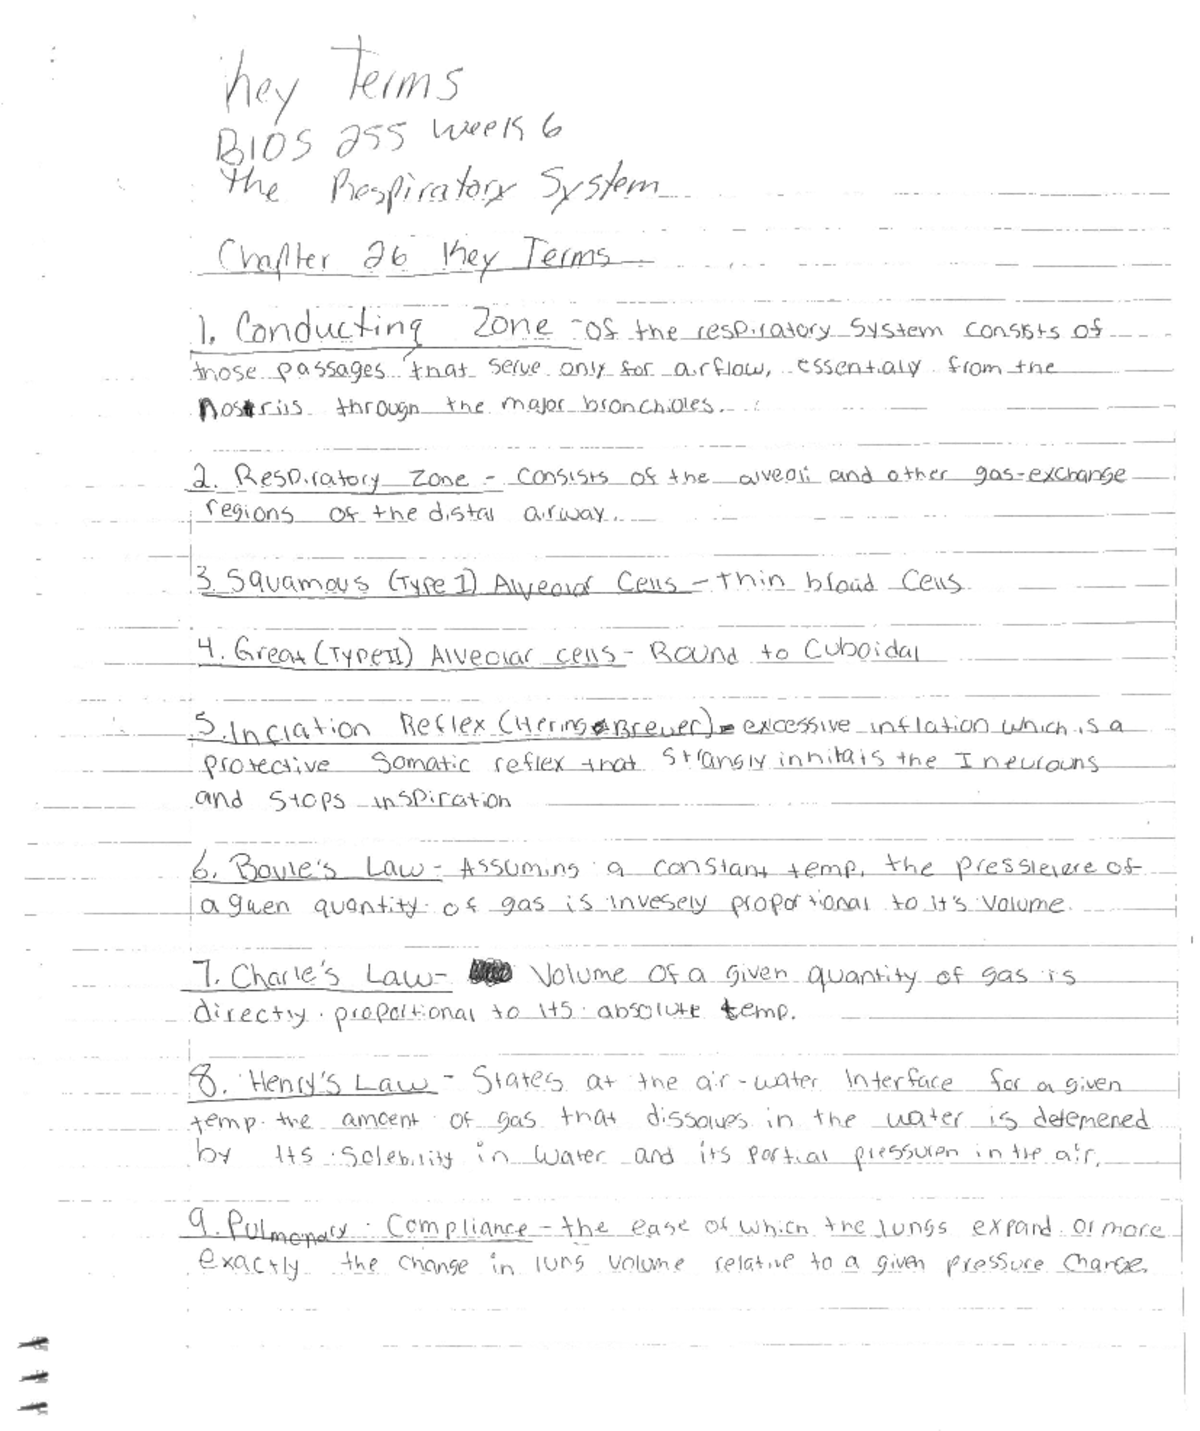 Key Terms
BIOS 255 Week 6
The Respiratory System
Chapter 26 Key Terms
1. Conducting Zone - of the respiratory system consists of
those passages that serve only for airflow, essentialy from the
nostrils through the major bronchioles.
2. Respiratory Zone - consists of the alveoli and other gas-exchange
regions of the distal airway.
3. Squamous (Type I) Alveolar Cells - thin broad cells
4. Great (Type II) Alveolar cells - Round to Cuboidal
5. Inflation Reflex (Hering-Breuer) - excessive inflation which is a
protective somatic reflex that strongly inhitats the I neurouns
and stops inspiration
6. Boyle's Law - Assuming a constant temp, the of
a given quantity of gas is invesely proportional to it's volume.
7. Charle's Law - Volume of a given quantity of gas is
directly proportional to its absolute temp.
8. Henry's Law - States at the air-water interface for a given
temp. the amount of gas that dissolves in the water is detemened
by its solebility in water and its partial in the air.
9. Pulmonary Compliance - the ease of which the lungs expand or more
exactly the change in lung volume relative to a given pressure change.